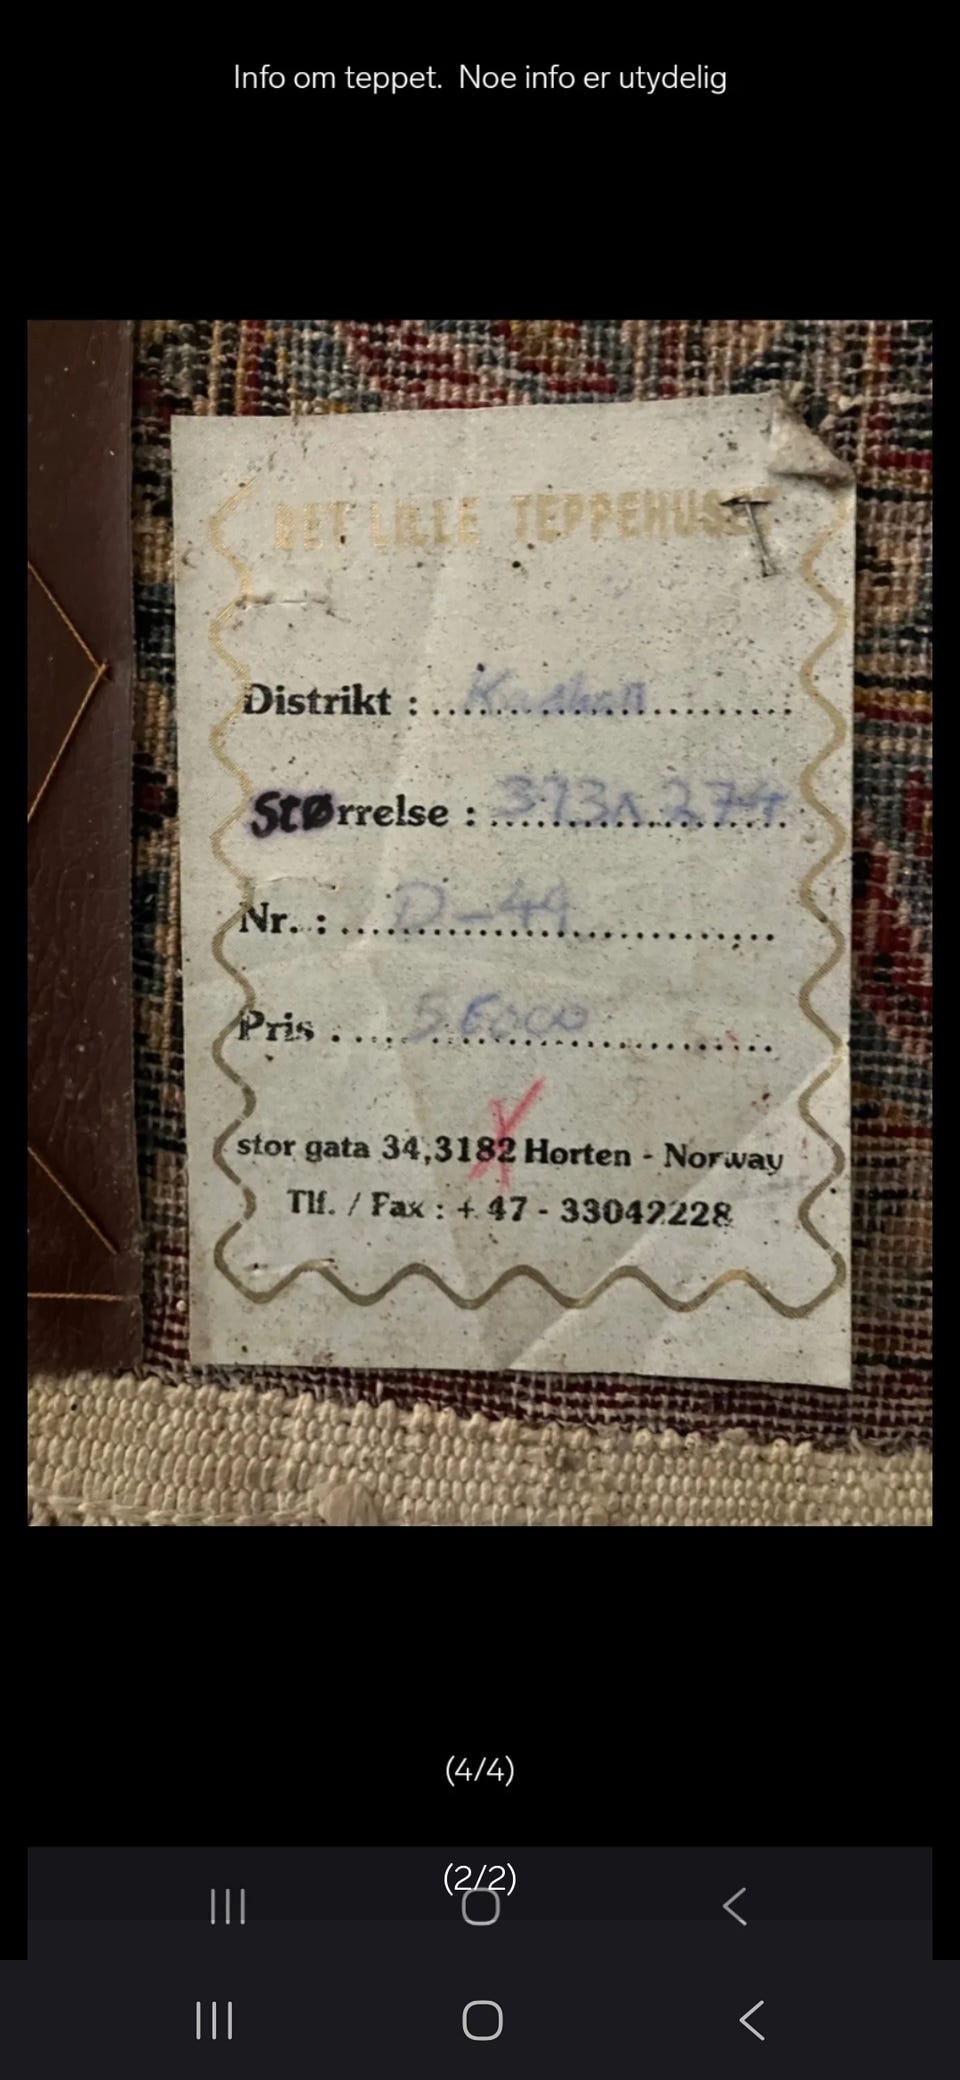 Info om teppet. Noe info er utydelig
DET LILLE TEPPEHUSET
Distrikt :
Størrelse : 373x274
Nr. : D-49
Pris 56000
stor gata 34,3182 Horten - Norway
Tlf. / Fax : + 47 - 33042228
(4/4)
(2/2)